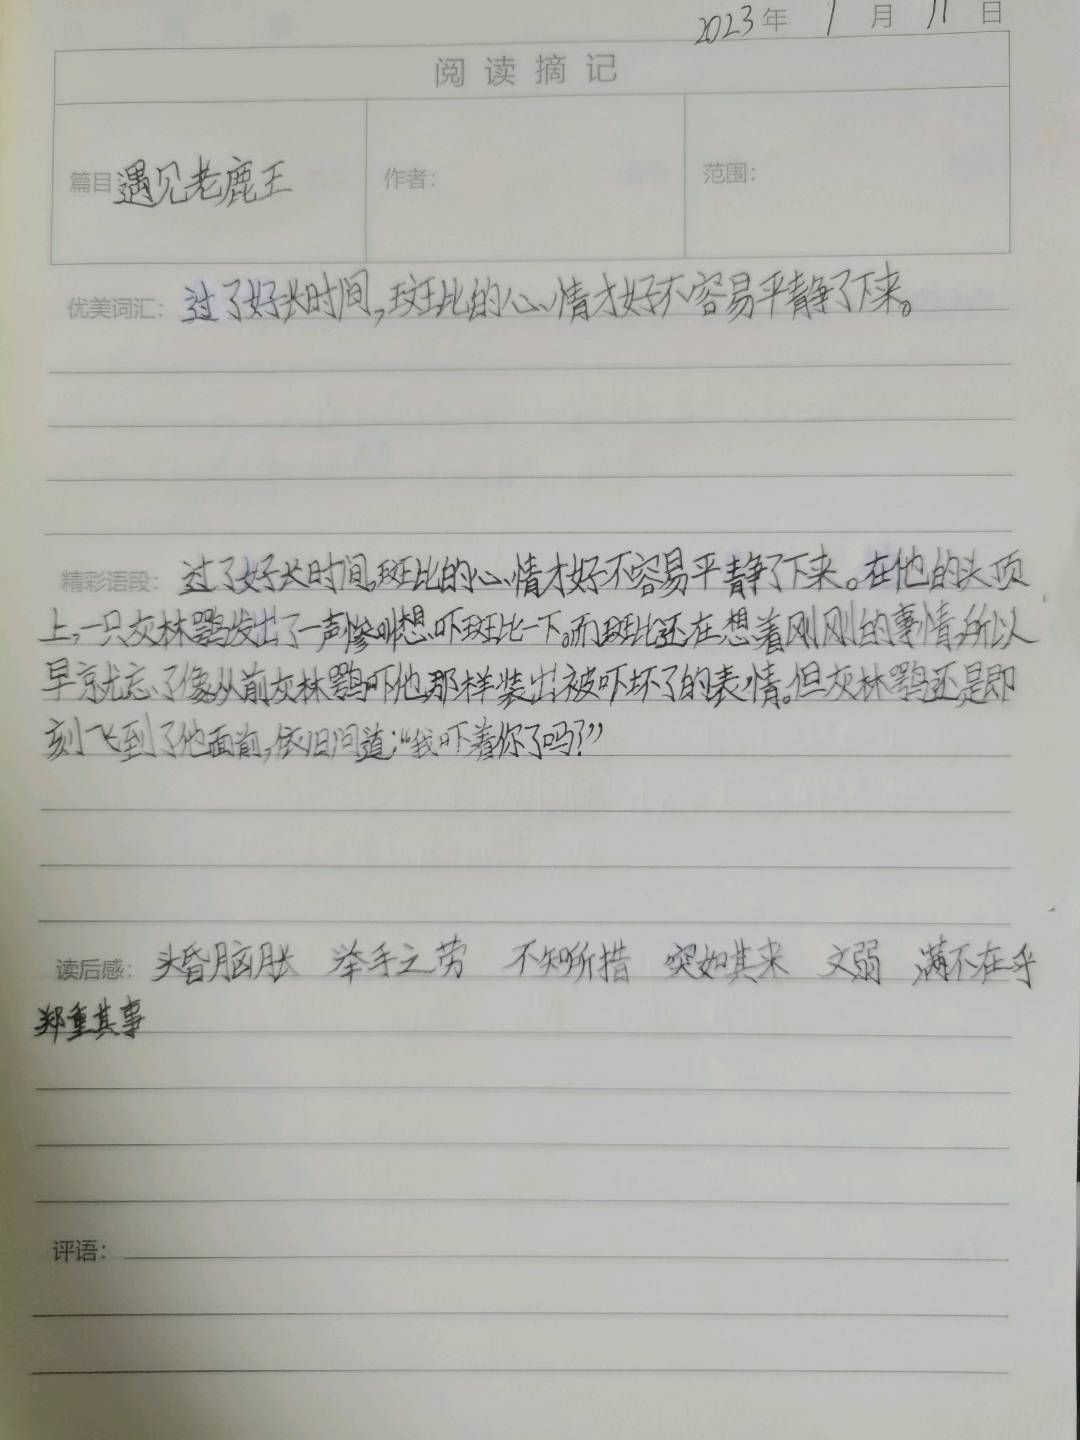 2023年 1月 11日
阅读摘记
篇目 遇见老鹿王 作者： 范围：
优美词汇：过了好长时间，斑比的心情才好不容易平静了下来。
精彩语段：过了好长时间，斑比的心情才好不容易平静了下来。在他的头顶
上，一只灰林鹗发出了一声惨叫想吓斑比一下。而斑比还在想着刚刚的事情，所以
早就忘了像从前灰林鹗吓他那样装出被吓坏了的表情。但灰林鹗还是即
刻飞到了他面前，依旧问道：“我吓着你了吗？”
读后感：头昏脑胀 举手之劳 不知所措 突如其来 文弱 满不在乎
郑重其事
评语：